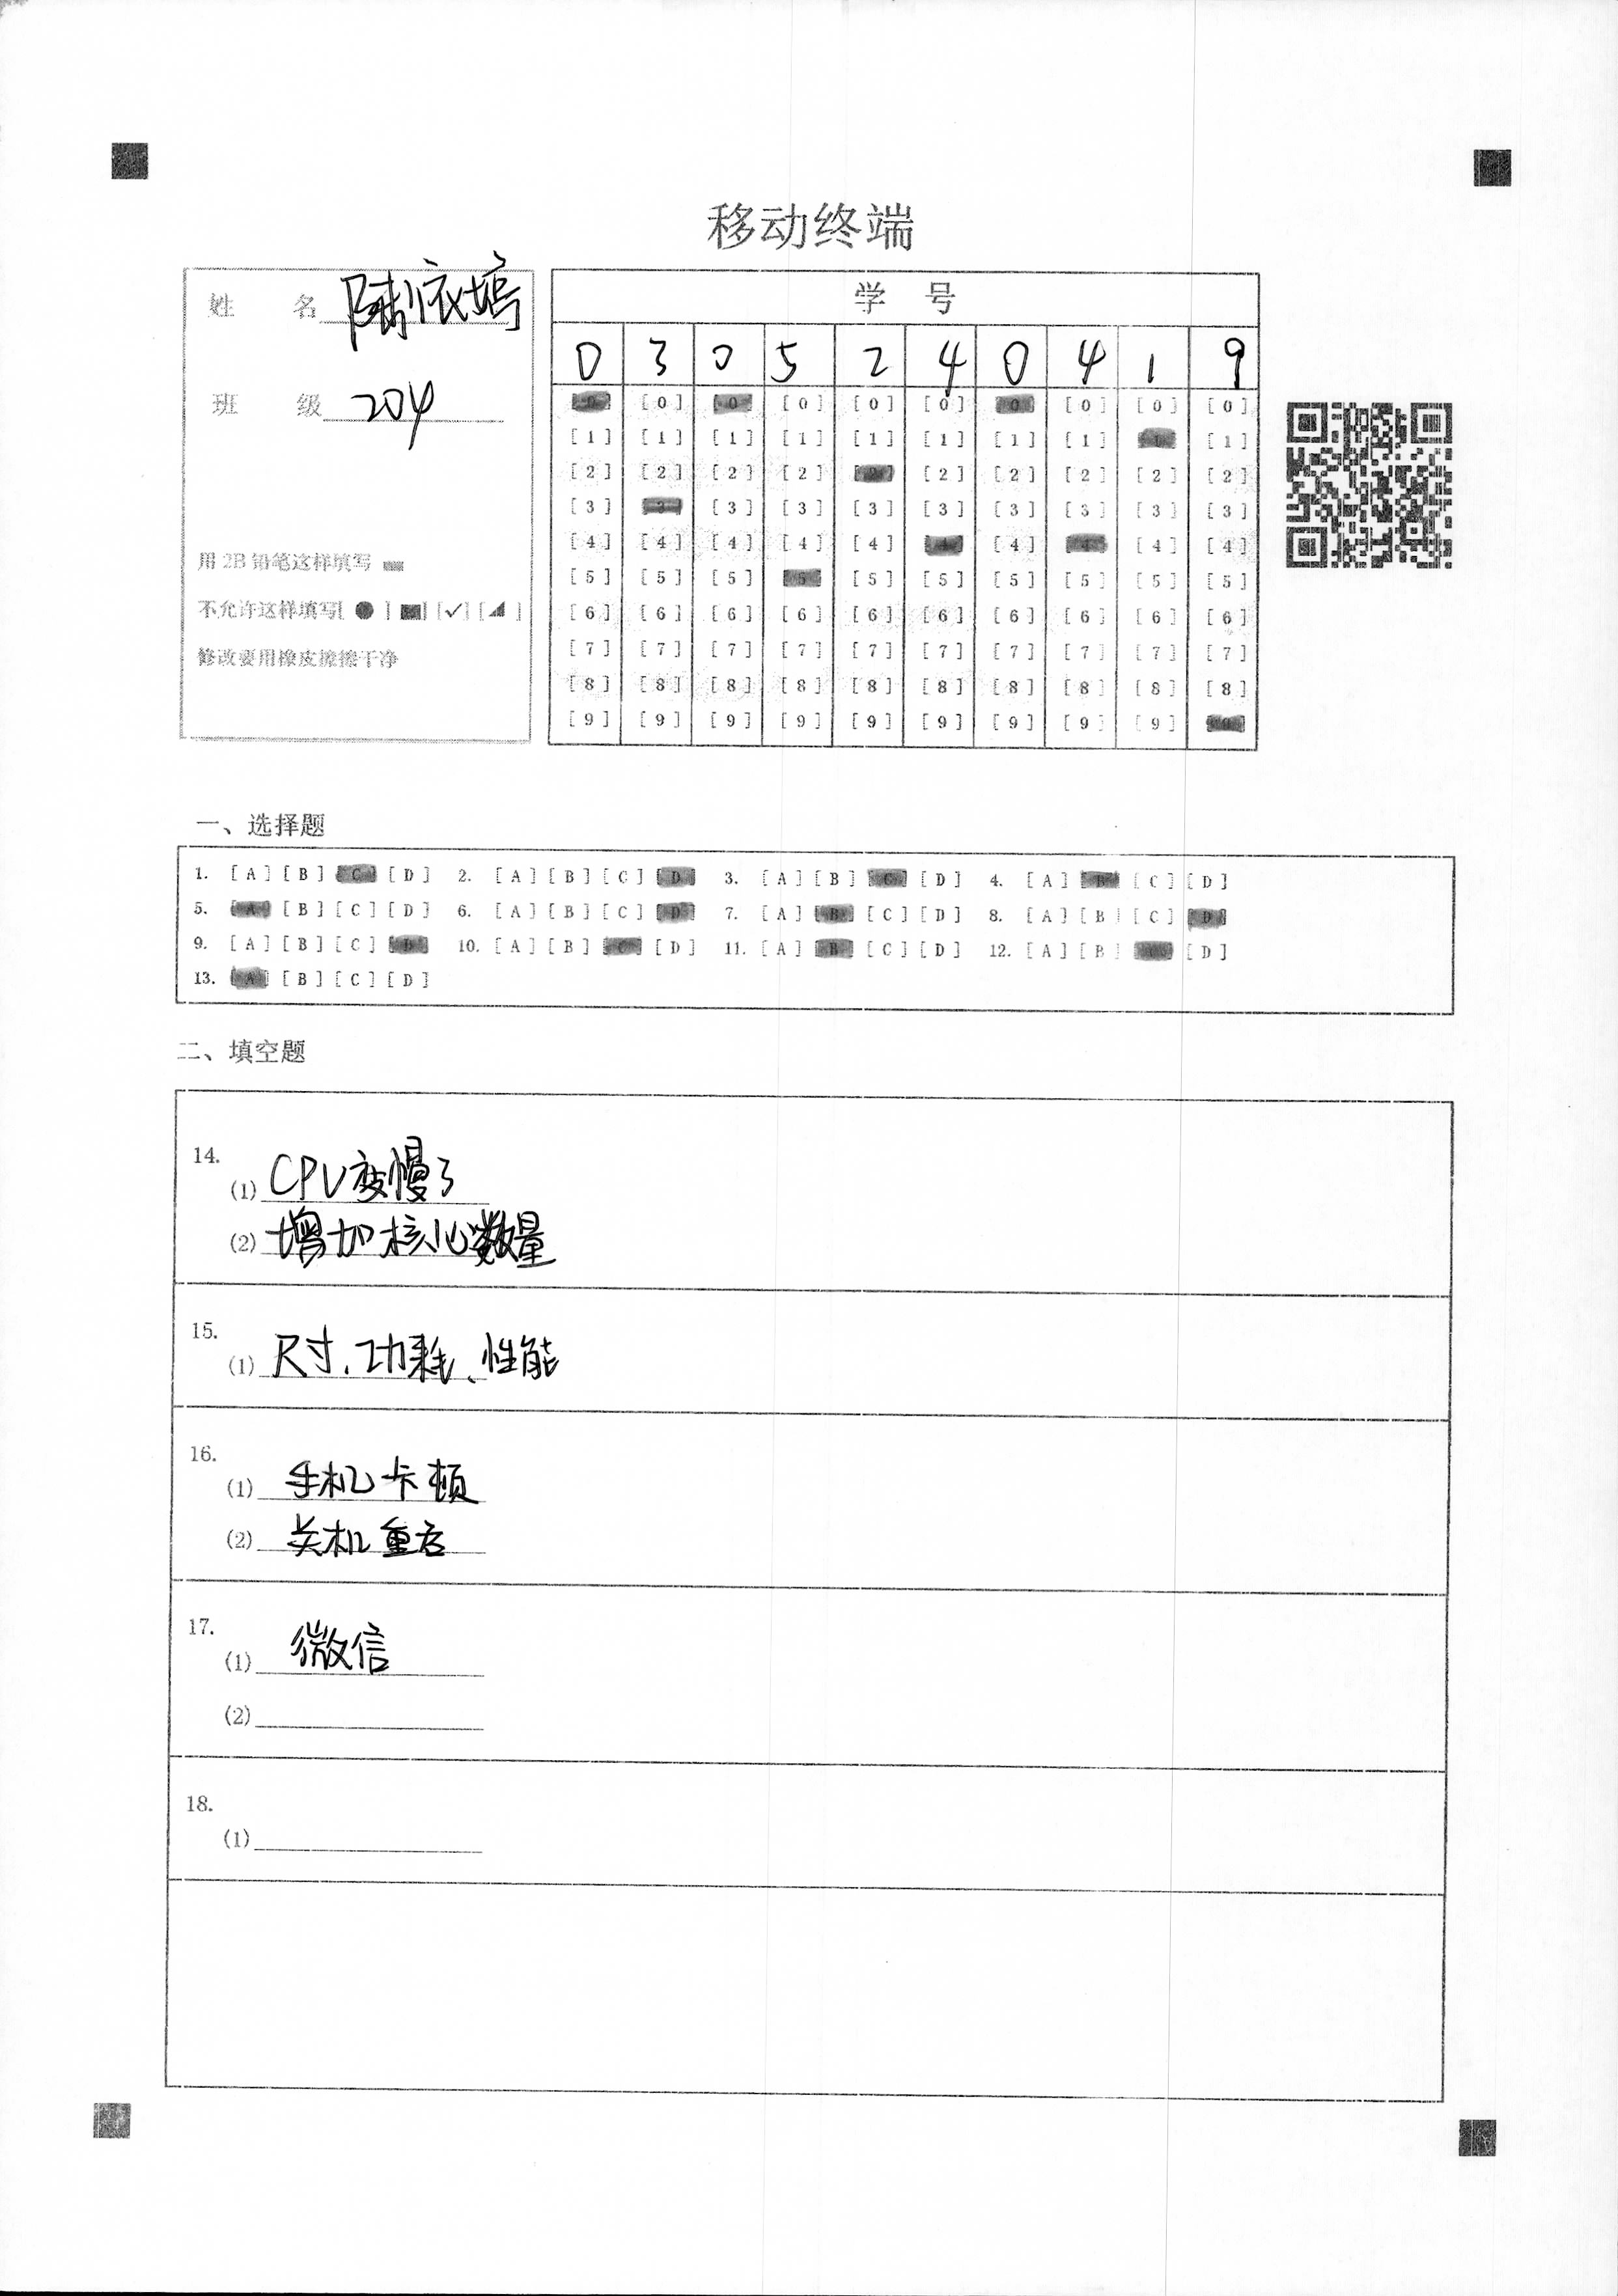 移动终端
姓 名 陈依坞
班 级 204
用 2B 铅笔这样填写
不允许这样填写[ ● ] [ ■ ] [ ✓ ] [ ◢ ]
修改要用橡皮擦擦干净
学 号
0 3 0 5 2 4 0 4 1 9
[0] [0] [0] [0] [0] [0] [0] [0] [0] [0]
[1] [1] [1] [1] [1] [1] [1] [1] [1] [1]
[2] [2] [2] [2] [2] [2] [2] [2] [2] [2]
[3] [3] [3] [3] [3] [3] [3] [3] [3] [3]
[4] [4] [4] [4] [4] [4] [4] [4] [4] [4]
[5] [5] [5] [5] [5] [5] [5] [5] [5] [5]
[6] [6] [6] [6] [6] [6] [6] [6] [6] [6]
[7] [7] [7] [7] [7] [7] [7] [7] [7] [7]
[8] [8] [8] [8] [8] [8] [8] [8] [8] [8]
[9] [9] [9] [9] [9] [9] [9] [9] [9] [9]
一、选择题
1. [A] [B] [C] [D] 2. [A] [B] [C] [D] 3. [A] [B] [C] [D] 4. [A] [B] [C] [D]
5. [A] [B] [C] [D] 6. [A] [B] [C] [D] 7. [A] [B] [C] [D] 8. [A] [B] [C] [D]
9. [A] [B] [C] [D] 10. [A] [B] [C] [D] 11. [A] [B] [C] [D] 12. [A] [B] [C] [D]
13. [A] [B] [C] [D]
二、填空题
14.
(1) CPU变慢了
(2) 增加核心数量
15.
(1) 尺寸、功耗、性能
16.
(1) 手机卡顿
(2) 关机重启
17.
(1) 微信
(2)
18.
(1)